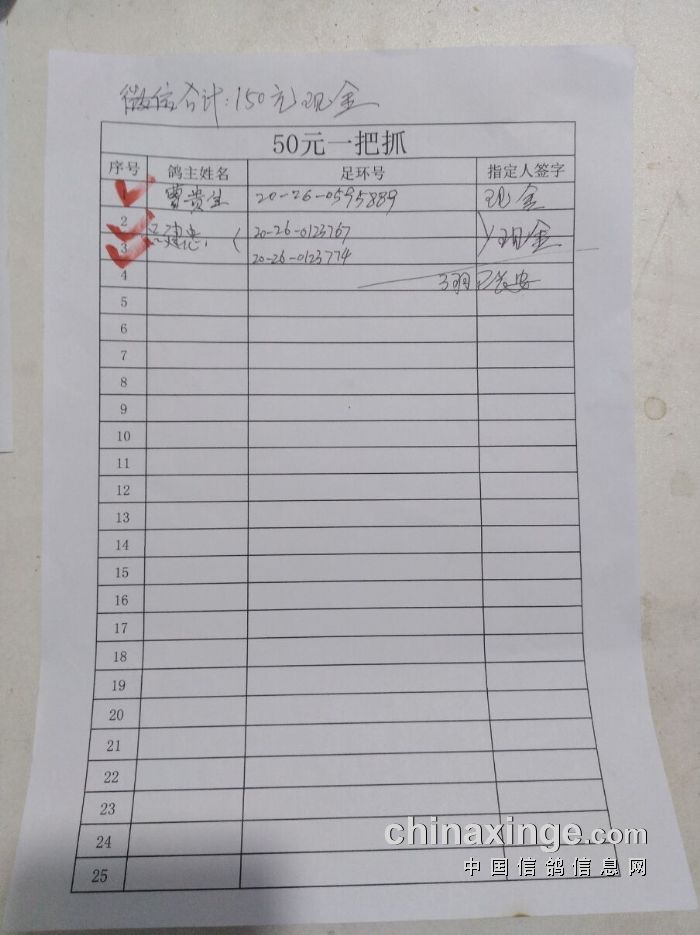 微信合计:150元现金
50元一把抓
序号 鸽主姓名 足环号 指定人签字
1 贾贵生 20-26-0595889 现金
2 20-26-0123767
3 20-26-0123774 现金
4 3羽
5
6
7
8
9
10
11
12
13
14
15
16
17
18
19
20
21
22
23
24
25
chinaxinge.com
中国信鸽信息网